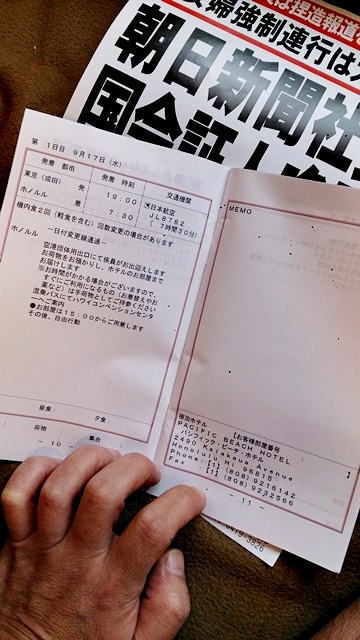 は捏造報道
婦強制連行は
朝日新聞社
国会証人
第 1日目 9月17日(水)
発着 都市 発着 時刻 交通機関
東京(成田) 発 19:00 日本航空
JL8782
ホノルル 着 7:30 (7時間30分)
機内食2回(軽食を含む)回数変更の場合があります
―日付変更線通過―
ホノルル 空港団体用出口にて係員がお出迎えします
お荷物をお預かりし、ホテルのお部屋まで
お届けします
※お時間がかかる場合がございますので、
すぐにご利用になるもの(お着替えやお
薬など)は手荷物としてご持参ください
混乗バスにてハワイコンベンションセンタ
ーへご案内
●お部屋は15:00からご用意します
その後、自由行動
昼食: 夕食:
荷物: 集合:
― 10 ―
MEMO
宿泊ホテル 【お客様部屋番号 】
PACIFIC BEACH HOTEL
パシフィック・ビーチ・ホテル
2490 Kalakaua Avenue
Honolulu Hi 96815
Phone:[1] (808) 9216142
Fax :[1] (808) 9232566
― 11 ―
0419-3826